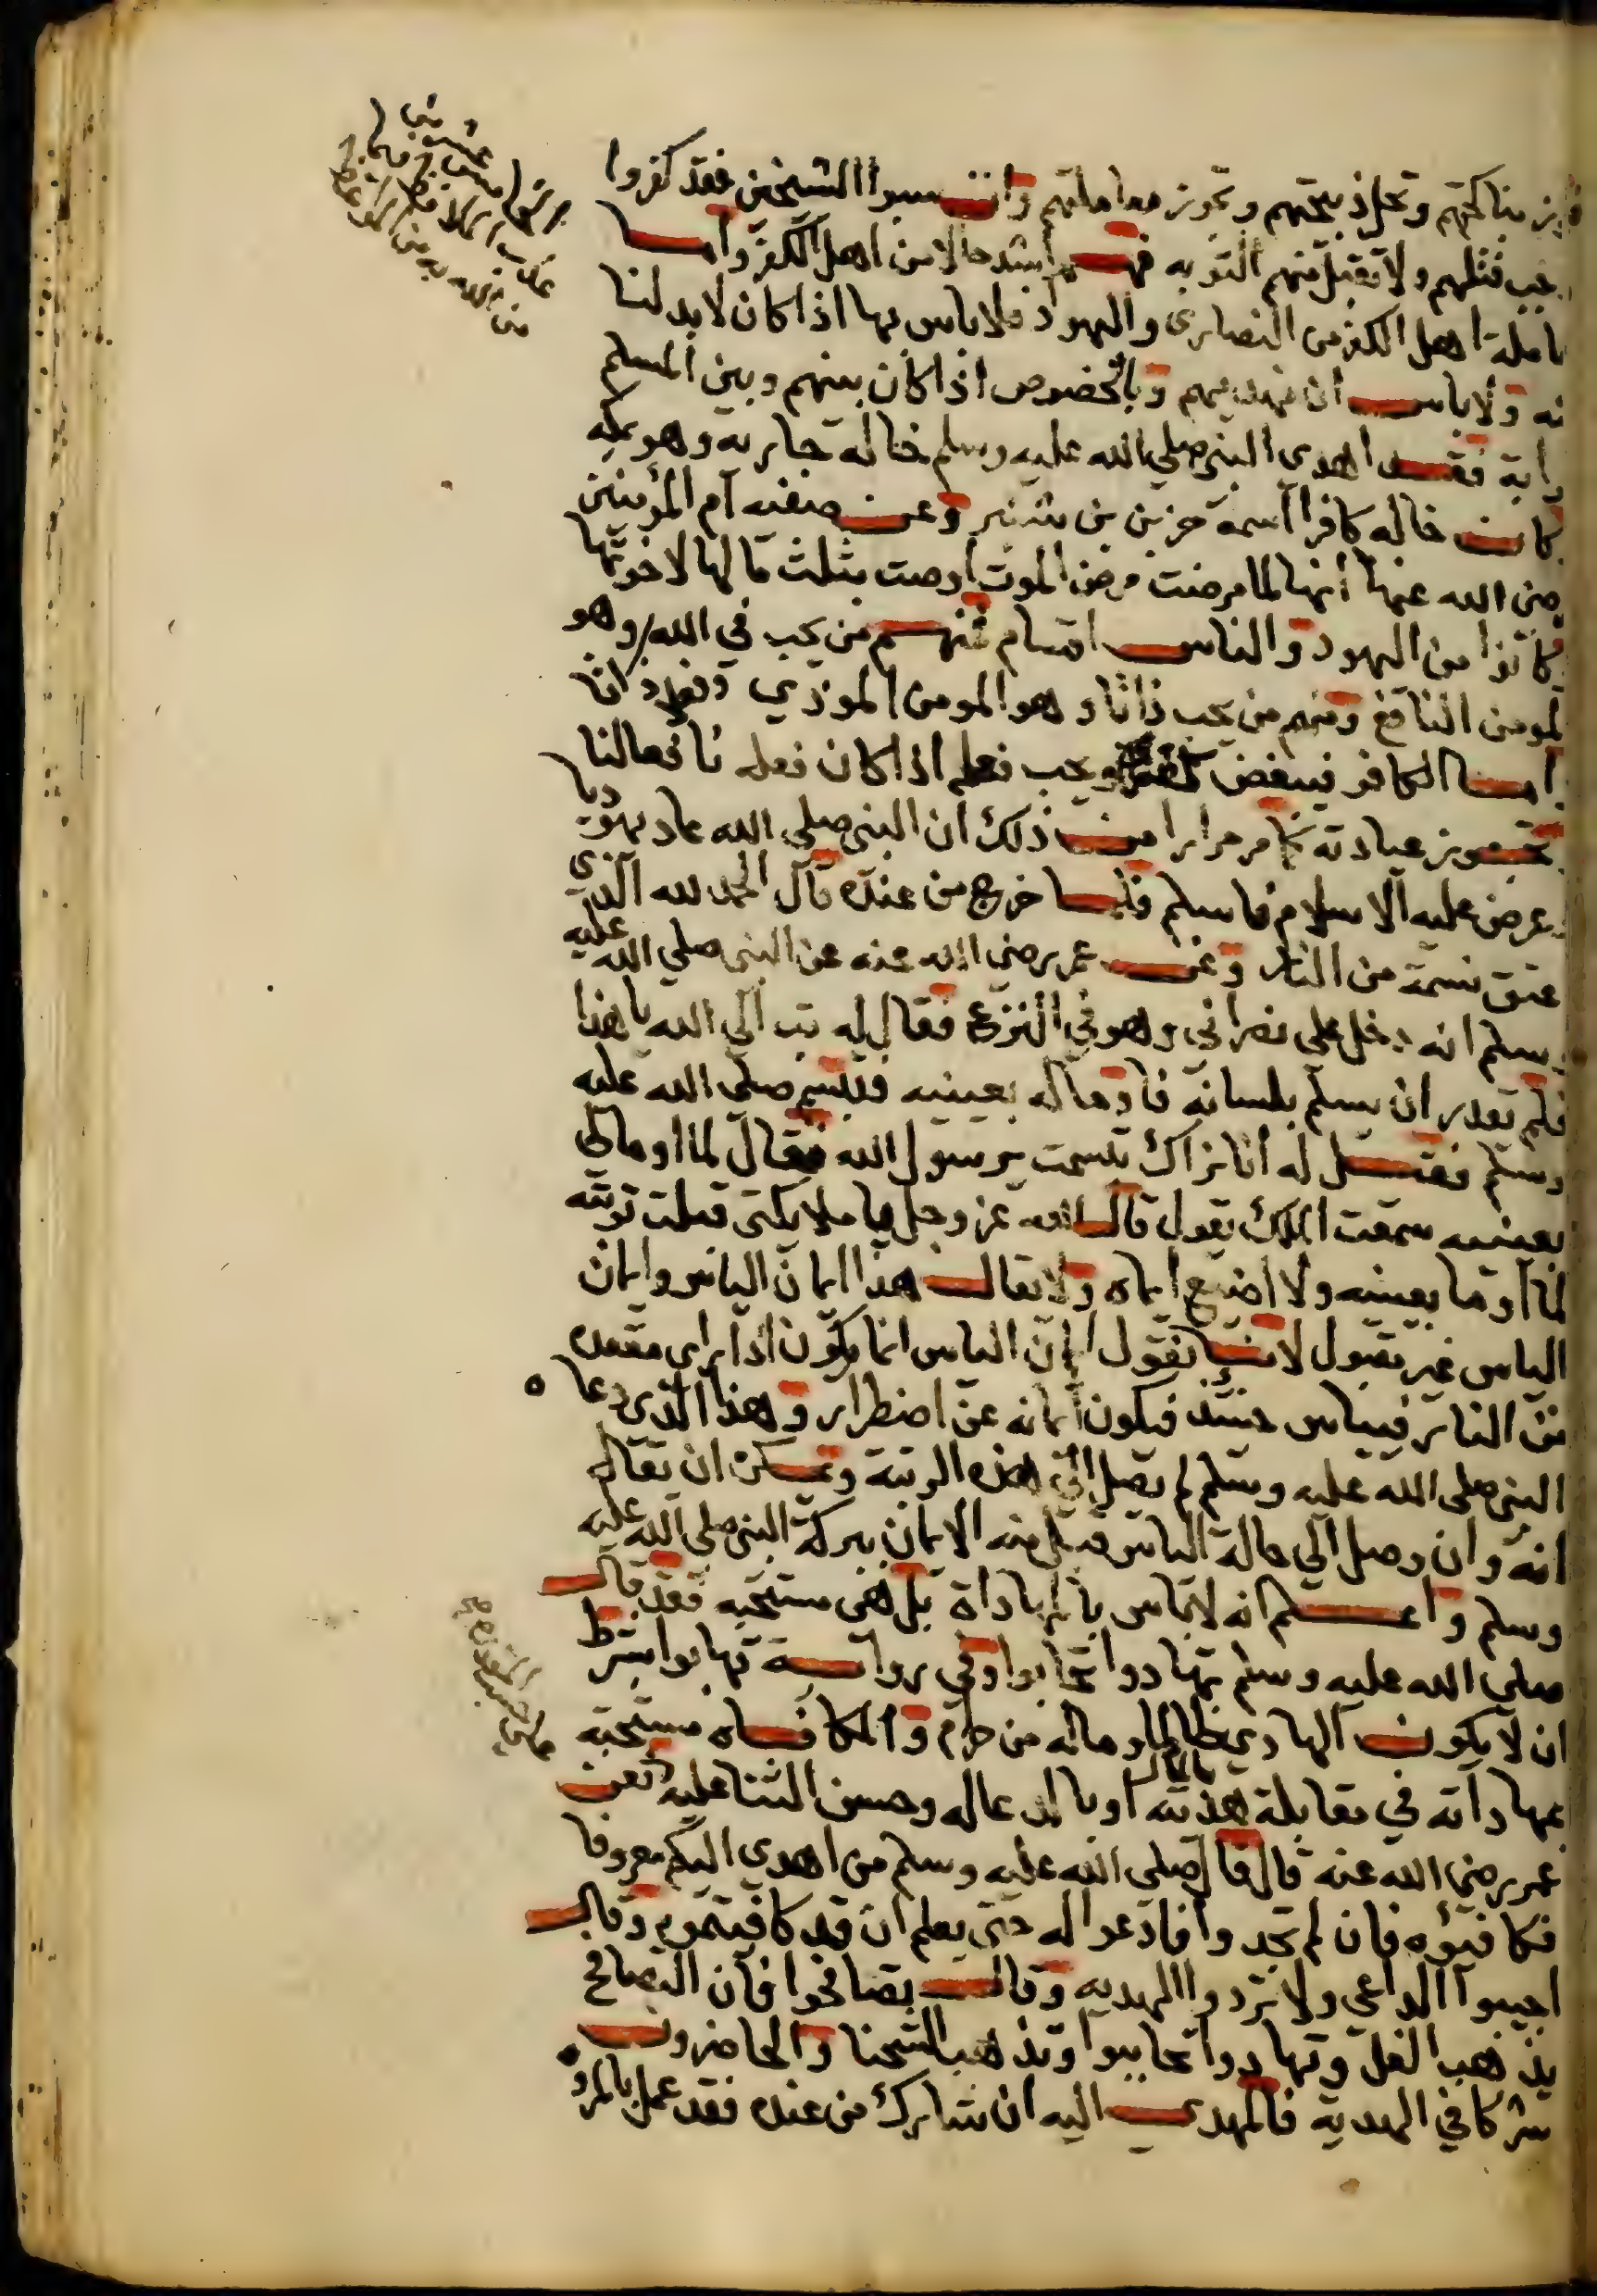 مناكحتهم وتحل ذبيحتهم وتجوز معاملتهم وان سبوا الشيخين فقد كفروا
يجب قتلهم ولا تقبل منهم التوبه فهم اشد حالا من اهل الكفر واما
معاملة اهل الكفر من النصارى واليهود فلا باس بها اذا كان لا بد لنا
منه ولا باس ان نهديهم وبالخصوص اذا كان بينهم وبين المسلم
قرابة فقد اهدى النبي صلي الله عليه وسلم خاله جاريه وهو بمكه
كان خاله كافرا اسمه حزين بن وعن صفيه ام المؤمنين
رضي الله عنها انها لما مرضت مرض الموت اوصت بثلث مالها لاخوتها
كانوا من اليهود والناس اقسام منهم من يحب في الله وهو
المومن النافع ومنهم من يحب ذاتا وهو المومن الموذي
اما الكافر فيبغض ويحب فعله اذا كان فعله نافعا لنا
تجوز عيادته كما مر مرارا من ذلك ان النبي صلى الله عاد يهوديا
وعرض عليه الاسلام فاسلم فلما خرج من عنده قال الحمد لله الذي
عتق نسمة من النار وعن عمر رضي الله عنه عن النبي صلي الله عليه
وسلم انه دخل علي نصراني وهو في النزع فقال له تب الي الله يا هذا
فلم يقدر ان يسلم بلسانه فاوما له بعينيه فتبسم صلى الله عليه
وسلم فقيل له انا نراك تبسمت يرسول الله فقال لما اوما لي
بعينيه سمعت الملك يقول قال الله عز وجل يا ملايكتى قبلت توبته
لما اوما بعينيه ولا اضيع ايمانه ولا يقال هذا ايمان الياس وايمان
الياس غير مقبول لانا نقول ايمان الياس انما يكون اذا راى مقعده
من النار فيياس حينئذ فيكون ايمانه عن اضطرار وهذا الذي دعاه
النبي صلى الله عليه وسلم لم يصل الي هذه الرتبة ويمكن ان يقال
انه وان وصل الي حالة الياس قبل منه الايمان ببركة النبي صلى الله عليه
وسلم واعلم انه لا باس بالمهاداة بل هي مستحبه فقد قال
صلي الله عليه وسلم تهادوا تحابوا وفي رواية تهابوا بشرط
ان لا يكون الهادي ظالما وماله من حرام والمكافاه مستحبه
بمهاداته في مقابلة هديته بالمال او بالدعا له وحسن الثنا عليه فعن
عمر رضي الله عنه قال قال صلى الله عليه وسلم من اهدى اليكم معروفا
فكافيوه فان لم تجدوا فادعوا له حتى يعلم ان قد كافيتموه وقال
اجيبوا الداعي ولا تردوا الهديه وقال تصافحوا فان التصافح
يذهب الغل وتهادوا تحابوا وتذهب الشحنا والحاضرون
شركا في الهدية فالمهدى اليه ان شارك من عنده فقد عمل بالمروه